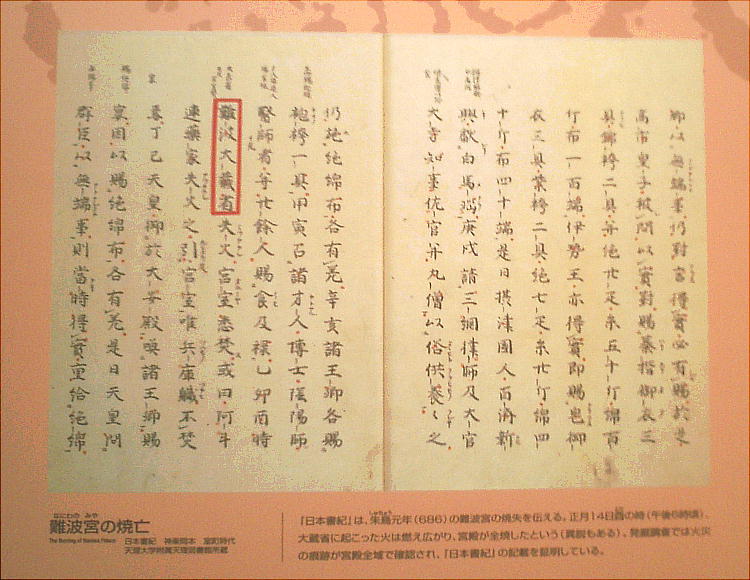 卿以無端事仍對言得實必有賜於是
高市皇子被問以實對賜蓁揩御衣三
具錦袴二具并絁廿疋糸五十斤綿百
斤布一百端伊勢王亦得實即賜皂御
衣三具紫袴二具絁七疋糸廿斤綿四
十斤布四十端是日摂津國人百済新
興献白馬瑙庚戌請三綱律師及大官
大寺知事佐官并九僧以俗供養々之
仍施絁綿布各有差辛亥諸王卿各賜
袍袴一具甲寅召諸才人博士陰陽師
醫師者并廿餘人賜食及禄乙卯酉時
難波大蔵省失火宮室悉焚或曰阿斗
連薬家失火之引宮室唯兵庫職不焚
焉丁巳天皇御於大安殿喚諸王卿賜
宴因以賜絁綿布各有差是日天皇問
群臣以無端事則當時得實重給絁綿
なにわの みや
難波宮の焼亡
The Burning of Naniwa Palace
日本書紀 神楽岡本 室町時代
天理大学附属天理図書館所蔵
しゅちょう
『日本書紀』は、朱鳥元年(686)の難波宮の焼失を伝える。正月14日酉の時(午後6時頃)、
大蔵省に起こった火は燃え広がり、宮殿が全焼したという(異説もある)。発掘調査では火災
の痕跡が宮殿全域で確認され、『日本書紀』の記載を証明している。